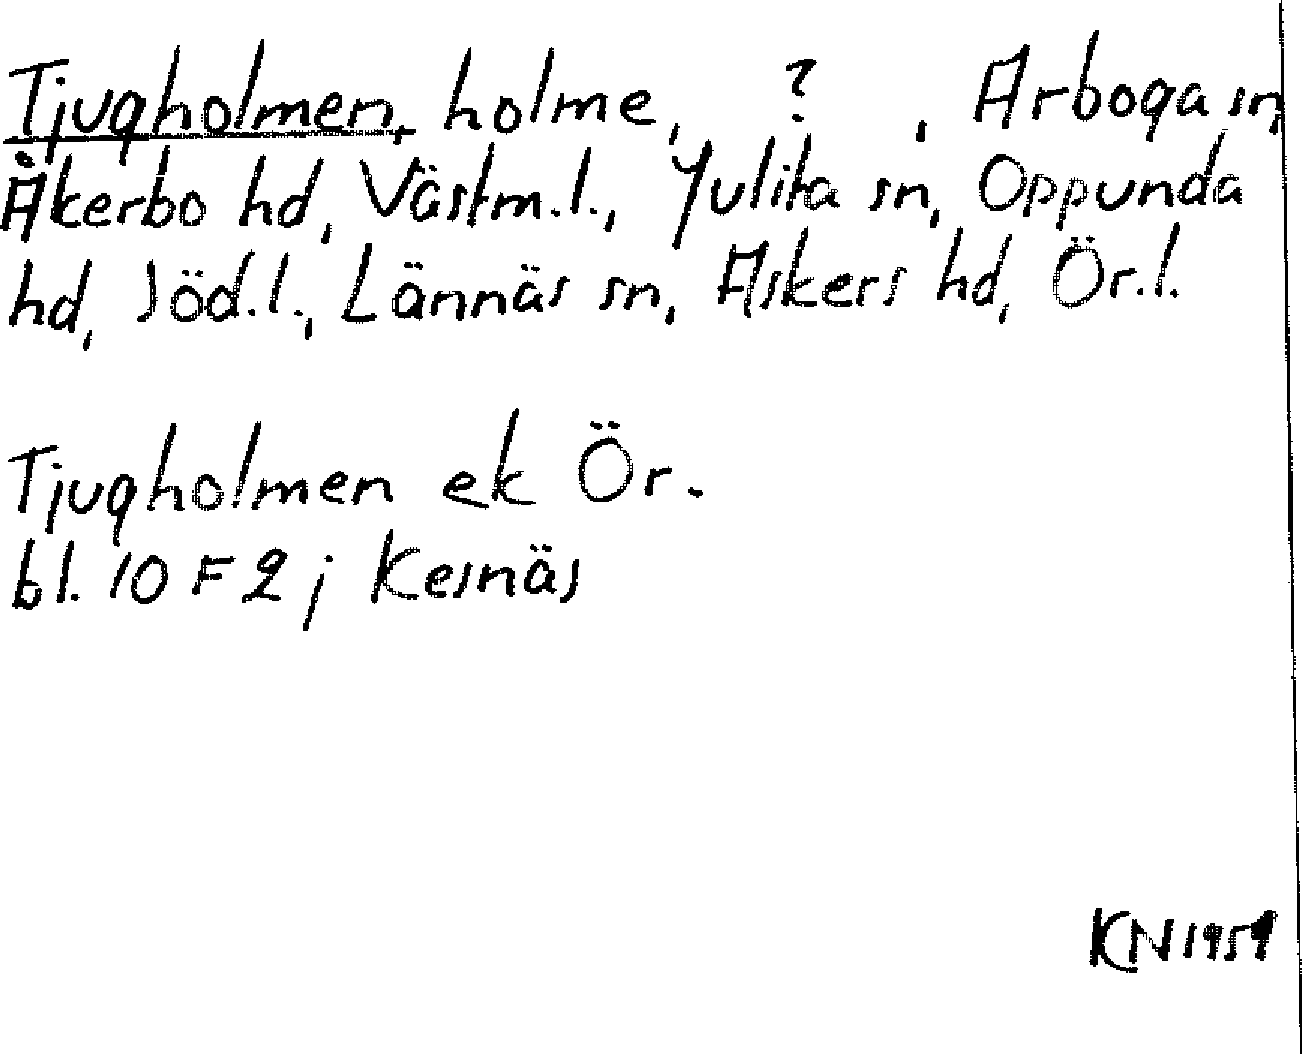 Tjugholmen, holme, ? , Arboga sn,
Åkerbo hd, Västm.l., Julita sn, Oppunda
hd, Söd.l., Lännäs sn, Askers hd, Ör.l.
Tjugholmen ek Ör.
bl. 10 F 2 ; Kesnäs
KN 1959